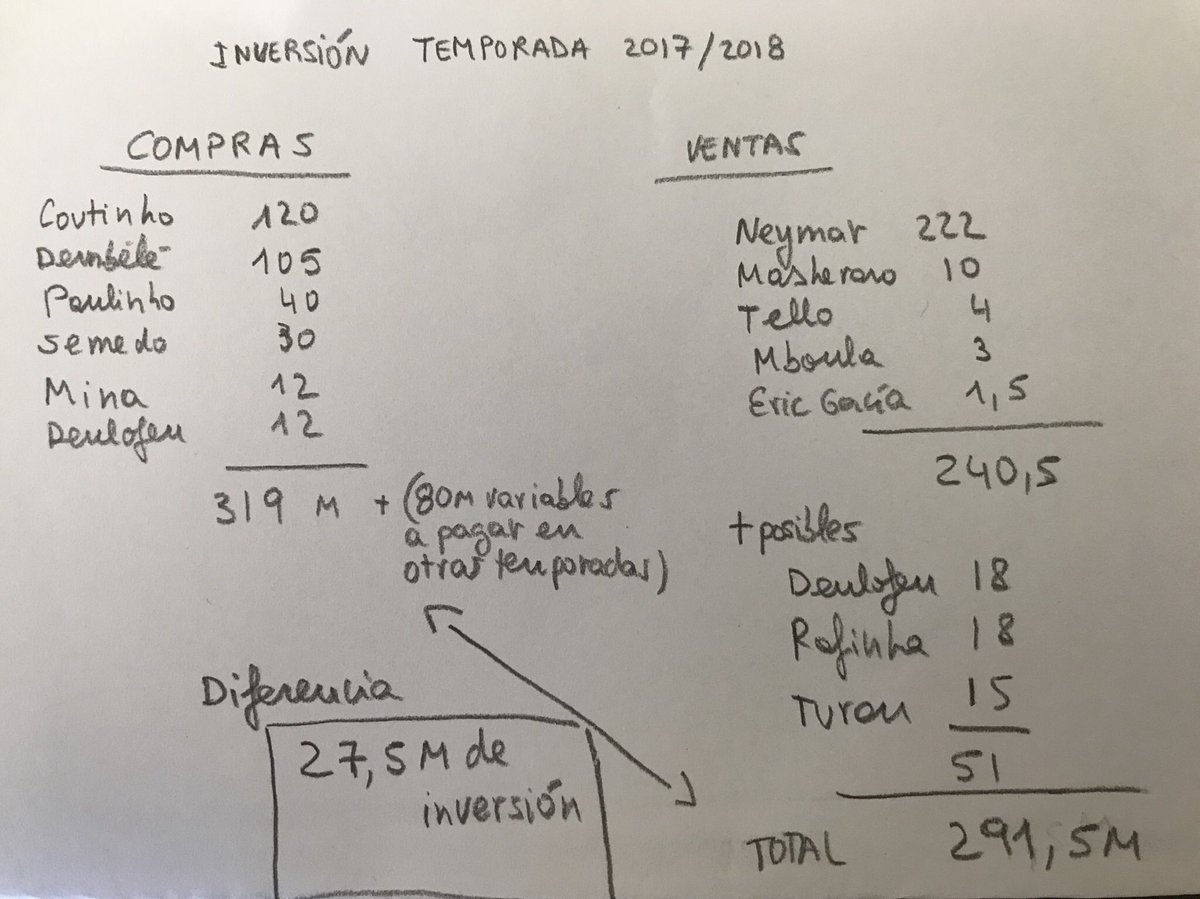 INVERSIÓN TEMPORADA 2017/2018
COMPRAS
Coutinho 120
Dembélé 105
Paulinho 40
Semedo 30
Mina 12
Deulofeu 12
319 M + (80M variables
a pagar en
otras temporadas)
Diferencia
27,5 M de
inversión
VENTAS
Neymar 222
Masherano 10
Tello 4
Mboula 3
Eric Gacía 1,5
240,5
+ posibles
Deulofeu 18
Rafinha 18
Turan 15
51
TOTAL 291,5M